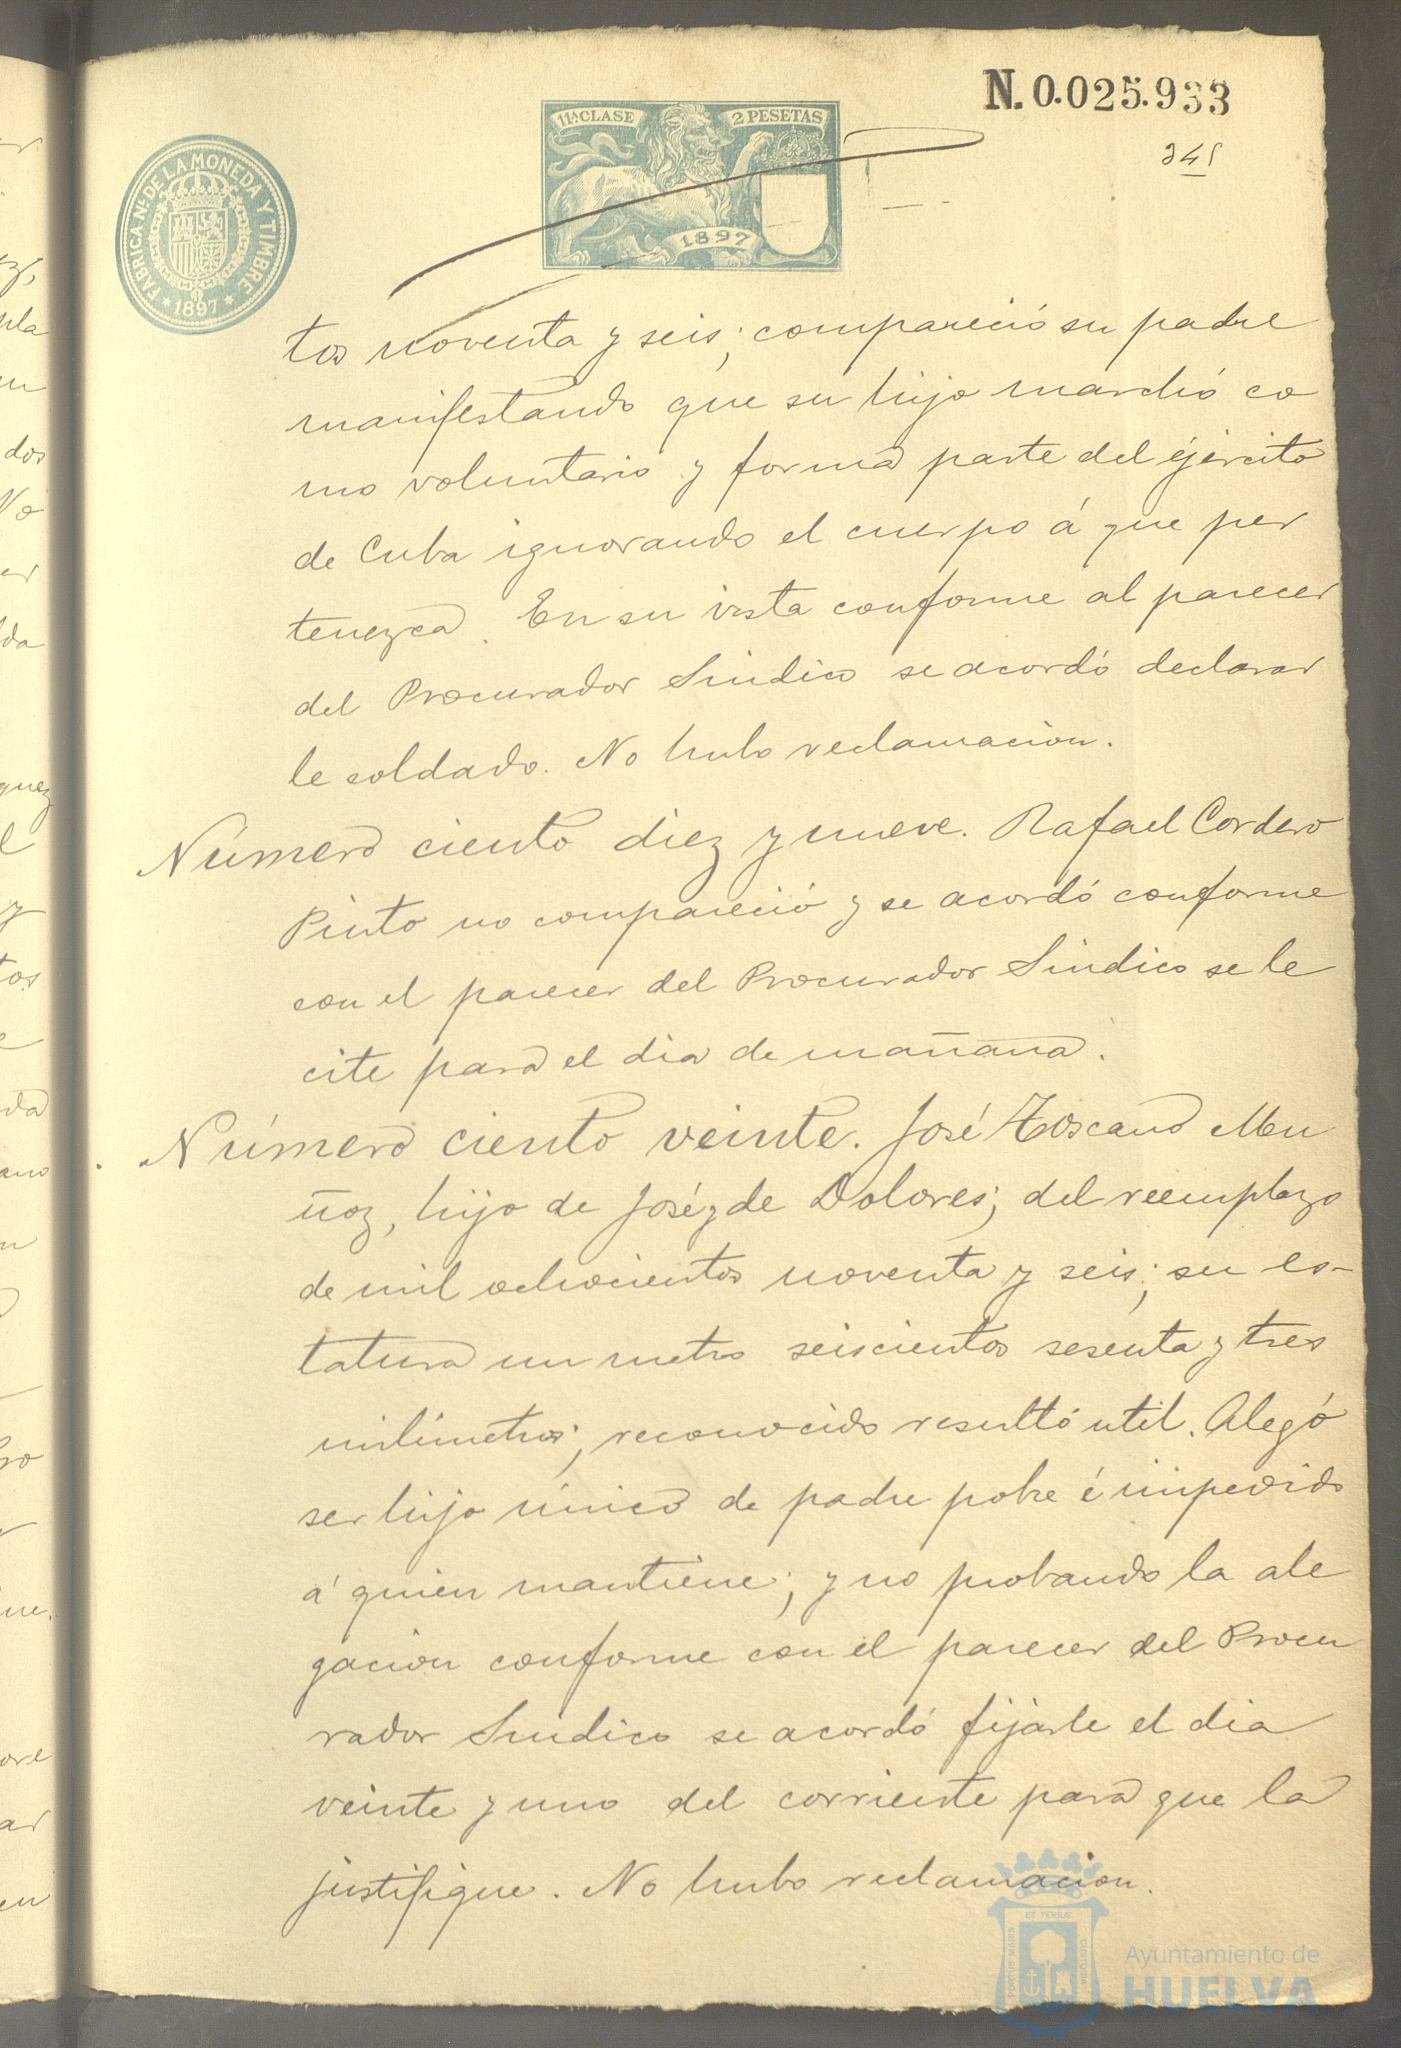 N. 0.025.933
11ª CLASE 2 PESETAS
1897
FABRICA Nal. DE LA MONEDA Y TIMBRE
* 1897 *
tos noventa y seis; compareció su padre
manifestando que su hijo marchó co
mo voluntario y forma parte del éjército
de Cuba ignorando el cuerpo á que per
tenezca. En su vista conforme al parecer
del Procurador Sindico se acordó declarar
le soldado. No hubo reclamacion.
Número ciento diez y nueve. Rafael Cordero
Pinto no compareció y se acordó conforme
con el parecer del Procurador Sindico se le
cite para el dia de mañana.
Número ciento veinte. José Toscano Mu
ñoz, hijo de José y de Dolores; del reemplazo
de mil ochocientos noventa y seis; su es-
tatura un metro seiscientos sesenta y tres
milimetros; reconocido resultó util. Alegó
ser hijo único de padre pobre é impedido
á quien mantiene; y no probando la ale
gacion conforme con el parecer del Procu
rador Sindico se acordó fijarle el dia
veinte y uno del corriente para que la
justifique. No hubo reclamacion.
PORTUS MARIS ET TERRAE CUSTODIA
Ayuntamiento de
HUELVA